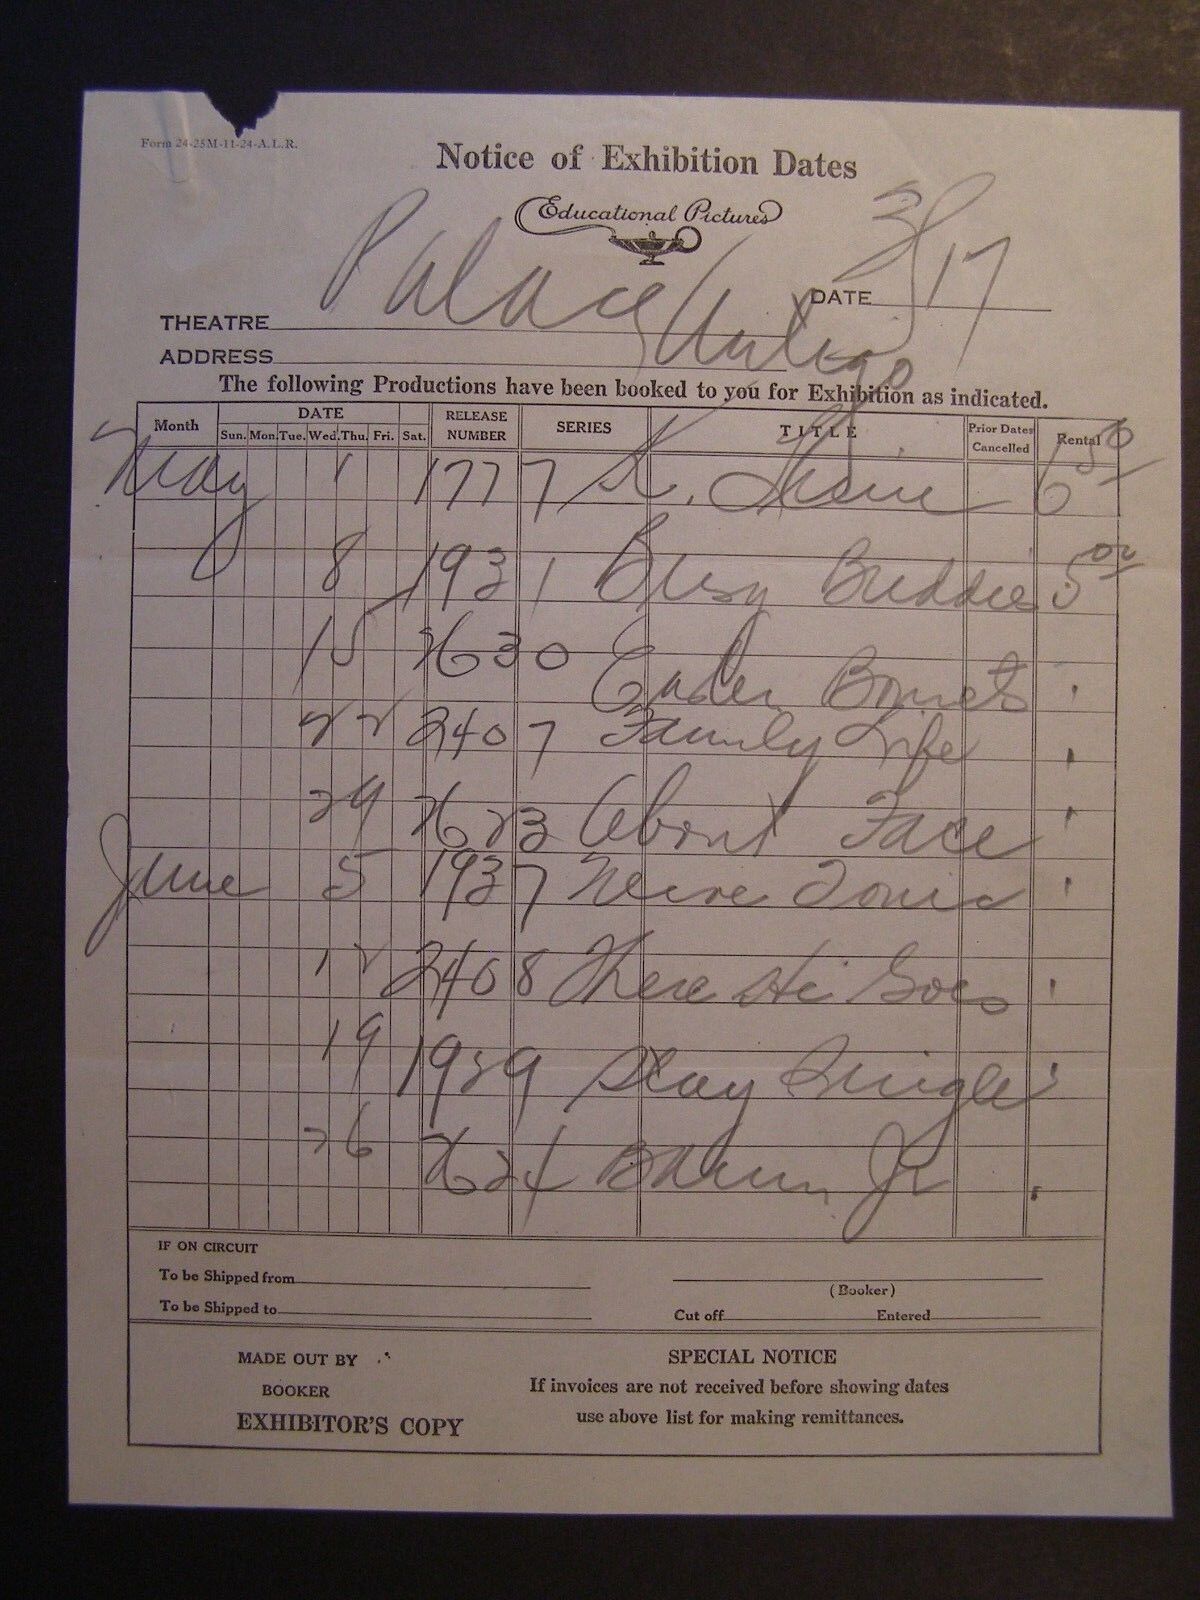 Form 24-25M-11-24-A.L.R.
Notice of Exhibition Dates
Educational Pictures
DATE 3/17
THEATRE Palace, Antigo
ADDRESS
The following Productions have been booked to you for Exhibition as indicated.
Month DATE RELEASE NUMBER SERIES TITLE Prior Dates Cancelled Rental
Sun. Mon. Tue. Wed. Thu. Fri. Sat.
May 1 1777 K. 6 50
8 1931 Busy Buddies 5 00
15 2630 Easter Bonnets "
22 2407 Family Life "
29 2623 About Face "
June 5 1937 Nerve Tonic "
12 2408 There He Goes "
19 1939 Stay Single "
26 2624 Jr "
IF ON CIRCUIT
To be Shipped from
(Booker)
To be Shipped to
Cut off Entered
MADE OUT BY
BOOKER
EXHIBITOR'S COPY
SPECIAL NOTICE
If invoices are not received before showing dates
use above list for making remittances.